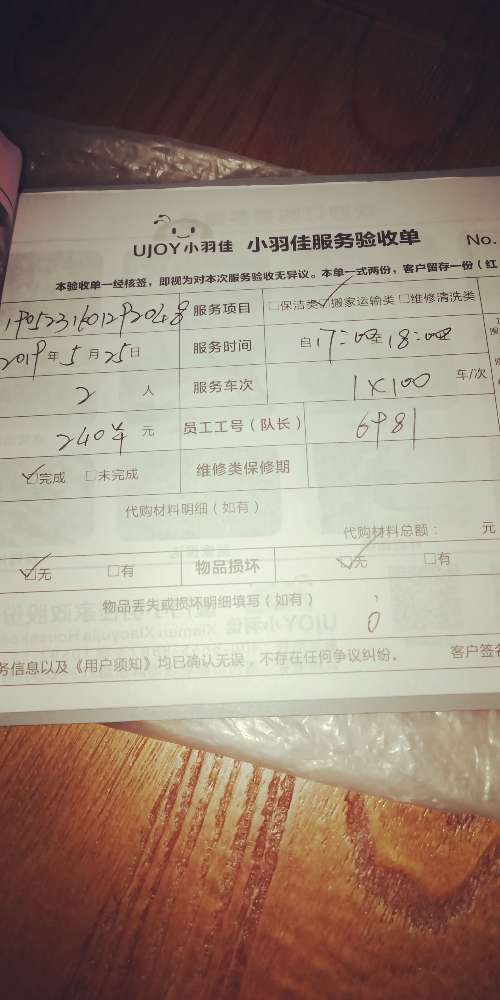 UJOY小羽佳 小羽佳服务验收单 No.
本验收单一经核签，即视为对本次服务验收无异议。本单一式两份，客户留存一份（红
服务项目 □保洁类 ☑搬家运输类 □维修清洗类
2019年5月25日 服务时间 自17:00至18:00
2 人 服务车次 1×100 车/次
元 员工工号（队长） 6981
☑完成 □未完成 维修类保修期
代购材料明细（如有）
代购材料总额： 元
☑无 □有 物品损坏 ☑无 □有
物品丢失或损坏明细填写（如有） 0
务信息以及《用户须知》均已确认无误，不存在任何争议纠纷。 客户签名